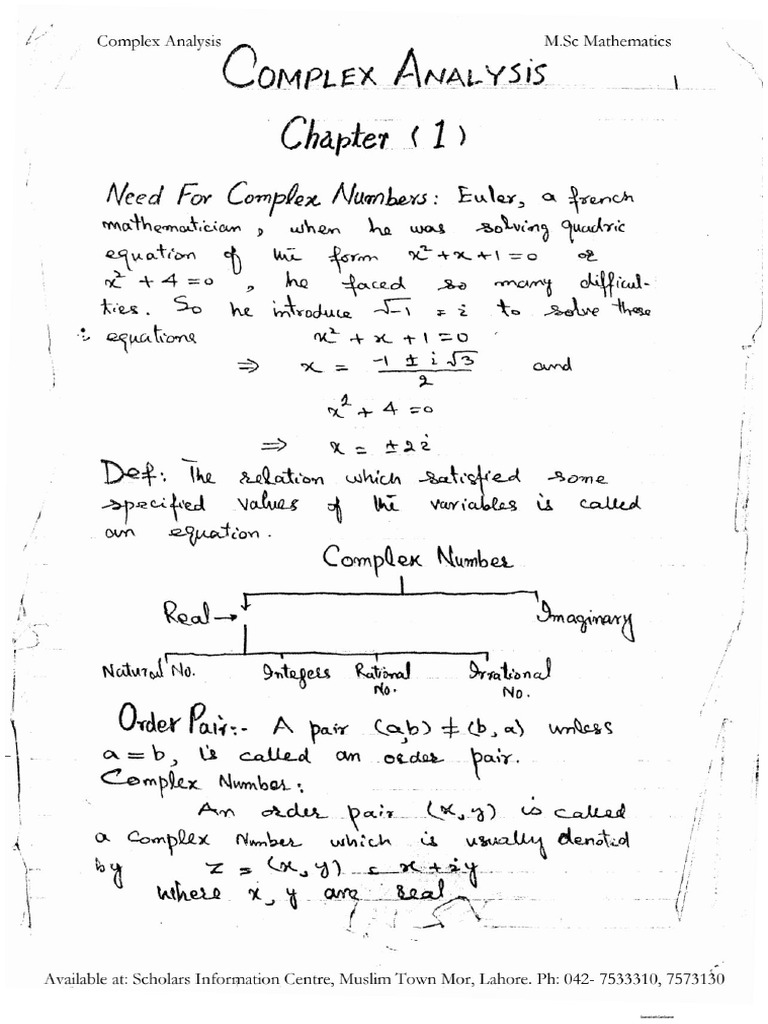 Complex Analysis M.Sc Mathematics
COMPLEX ANALYSIS 1
Chapter (1)
Need For Complex Numbers: Euler, a french
mathematician, when he was solving quadric
equation of the form x² + x + 1 = 0 or
x² + 4 = 0, he faced so many difficul-
ties. So he introduce √-1 = i to solve these
equations x² + x + 1 = 0
⇒ x = (-1 ± i√3)/2 and
x² + 4 = 0
⇒ x = ±2i
Def: The relation which satisfied some
specified values of the variables is called
an equation.
Complex Number
Real → Imaginary
Natural No. Integers Rational No. Irrational No.
Order Pair:- A pair (a,b) ≠ (b,a) unless
a = b, is called an order pair.
Complex Number:
An order pair (x,y) is called
a complex Number which is usually denoted
by z = (x,y) = x + iy
where x, y are real
Available at: Scholars Information Centre, Muslim Town Mor, Lahore. Ph: 042- 7533310, 7573130